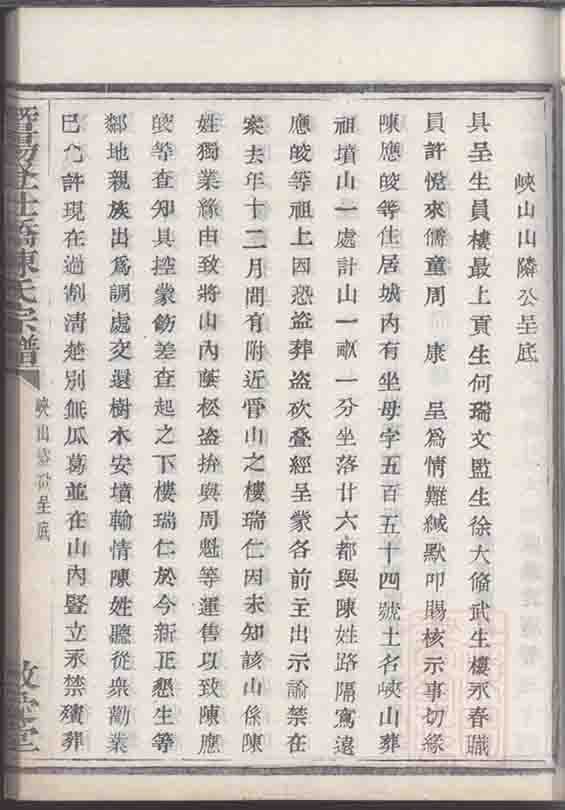 峽山山隣公呈底
具呈生員樓最上貢生何瑞文監生徐大脩武生樓永春職
員許悅來儒童周　康　呈爲情難緘默叩賜核示事切緣
陳應皎等住居城內有坐母字五百五十四號土名峽山葬
祖墳山一處計山一畝一分坐落廿六都與陳姓路隔窵遠
應皎等祖上因恐盜葬盜砍叠經呈蒙各前主出示諭禁在
案去年十二月間有附近管山之樓瑞仁因未知該山係陳
姓獨業緣由致將山內蔭松盜拚與周魁等運售以致陳應
皎等查知具控蒙飭差查起之下樓瑞仁於今新正懇生等
鄰地親族出爲調處交還樹木安墳輸情陳姓聽從衆勸業
已允許現在過割清楚別無瓜葛並在山內豎立永禁殯葬
暨陽登仕橋陳氏宗譜
峽山盜砍呈底